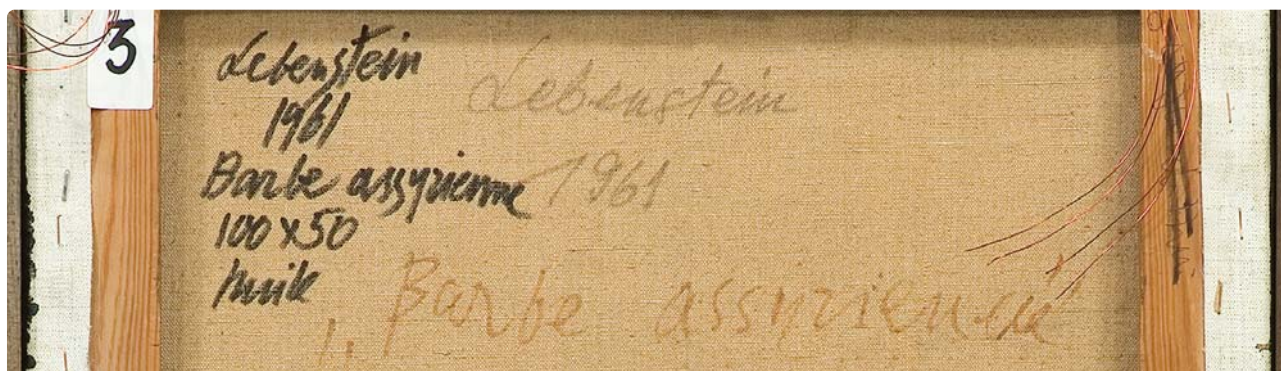 3
Lebenstein
1961
Barbe assyrienne
100 x 50
huile
Lebenstein
1961
"Barbe assyrienne"